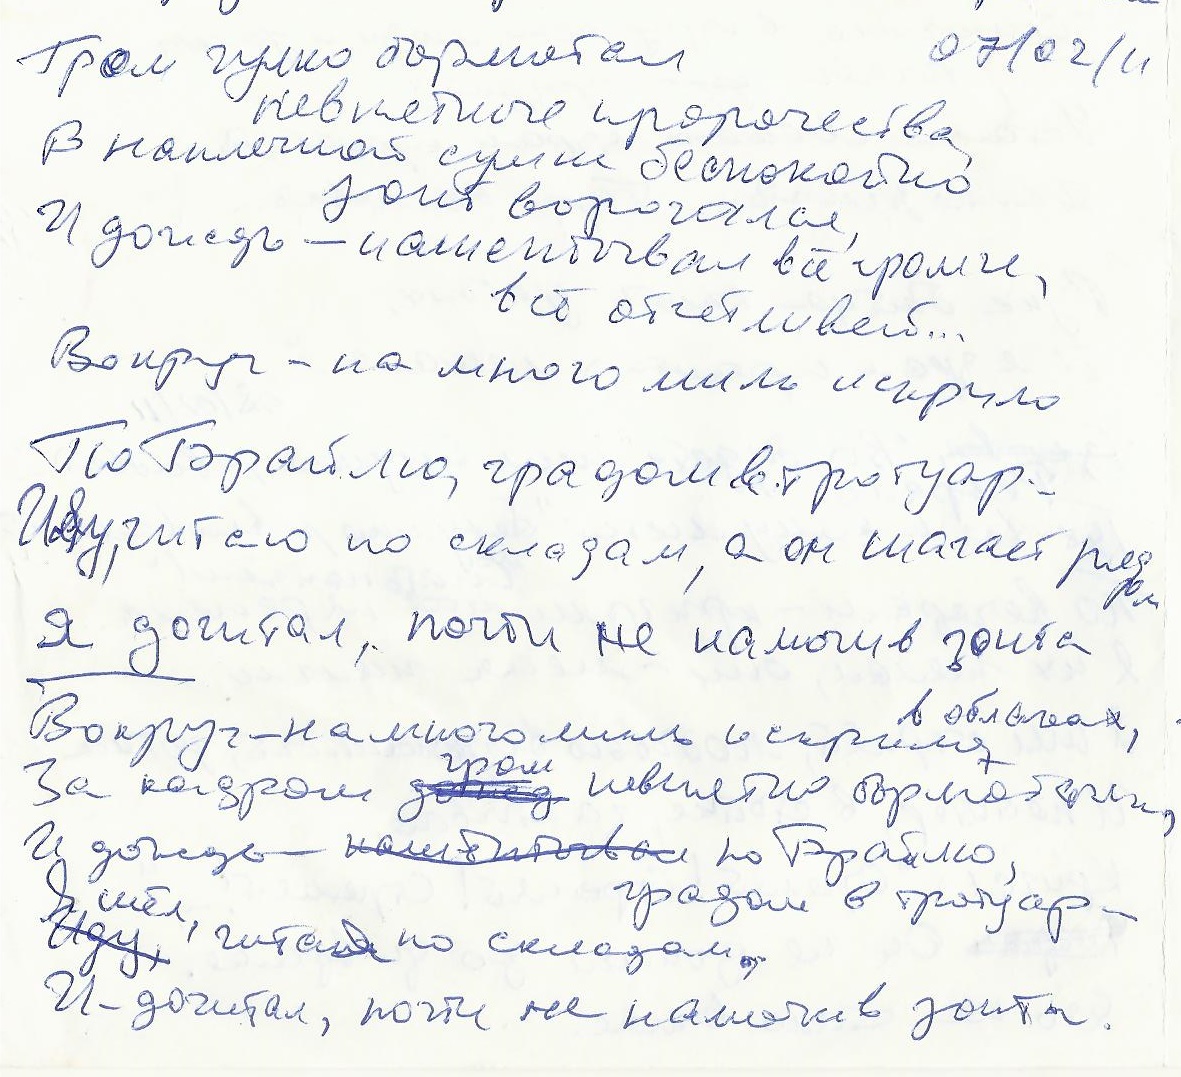 Гром гулко бормотал 07/02/11
невнятные пророчества,
В наплечной сумке беспокойно
зонт ворочался,
И дождь – нашёптывал всё громче,
всё отчётливей...
Вокруг – на много миль искрило
По Брайлю, градом в тротуар –
Иду, читаю по складам, а он шагает рядом
Я дочитал, почти не намочив зонта
Вокруг – на много миль искрило в облаках,
За кадром дождь гром невнятно бормотал,
И дождь – нашёптывал по Брайлю,
градом в тротуар –
Иду, Я шёл, читая по складам,
И – дочитал, почти не намочив зонта.